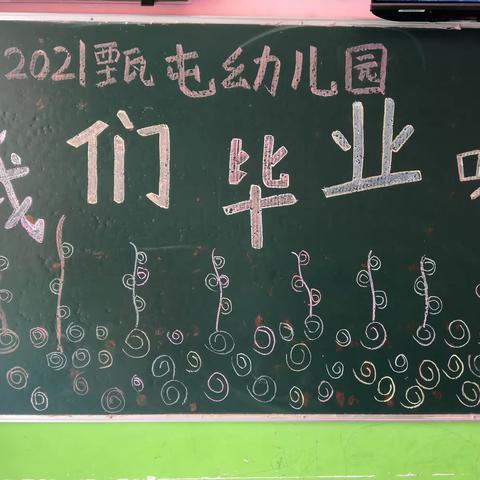 2021甄屯幼儿园
我们毕业